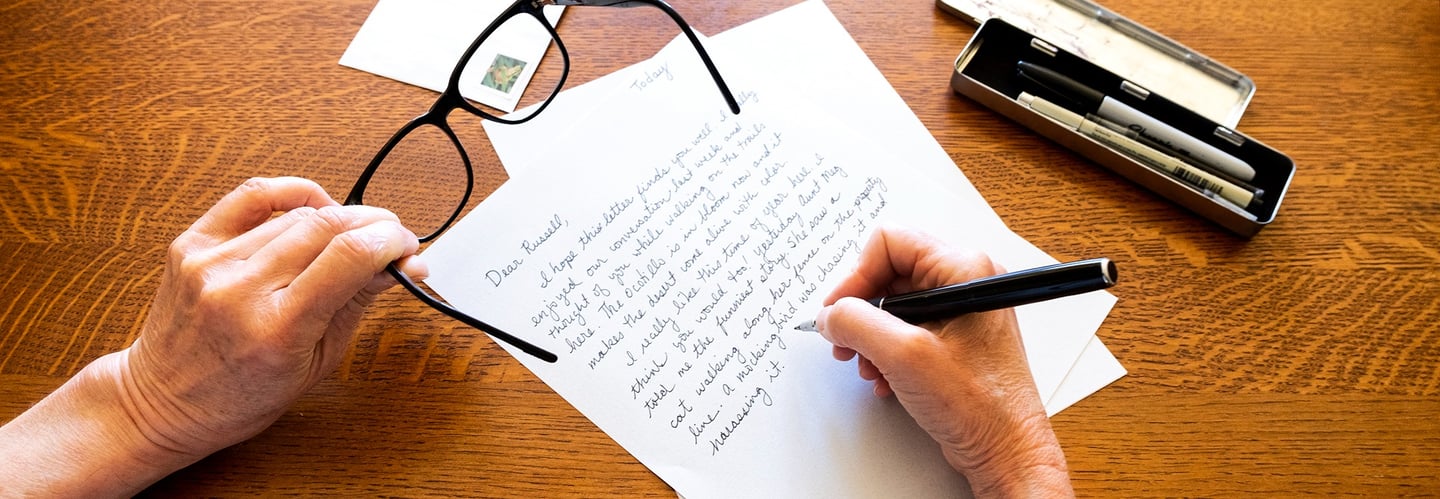 Today
Dear Russell,
I hope this letter finds you well. I really
enjoyed our conversation last week and
thought of you while walking on the trails
here. The Ocotillo is in bloom now and it
makes the desert come alive with color.
I really like this time of year here. I
think you would too! Yesterday Aunt Meg
told me the funniest story. She saw a
cat walking along her fence on the property
line. A mockingbird was chasing it and
harassing it.
Sharpie